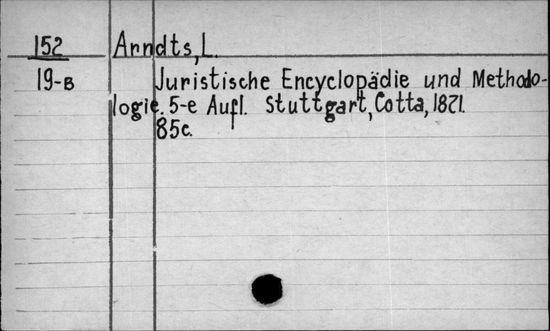 152 Arndts, L.
19-B Juristische Encyclopädie und Methodo-
logie. 5-e Aufl. Stuttgart, Cotta, 1871.
85c.